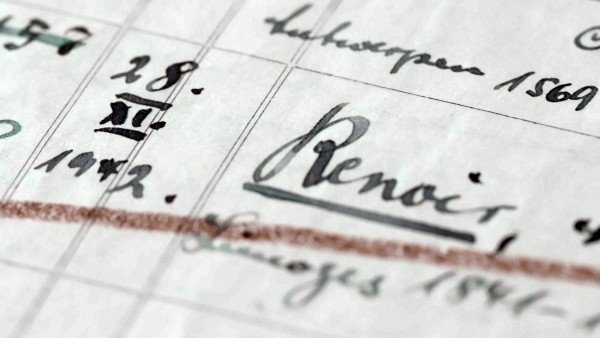 157
Antwerpen 1569
28.
XI.
1942.
Renoir,
Limoges 1841-1